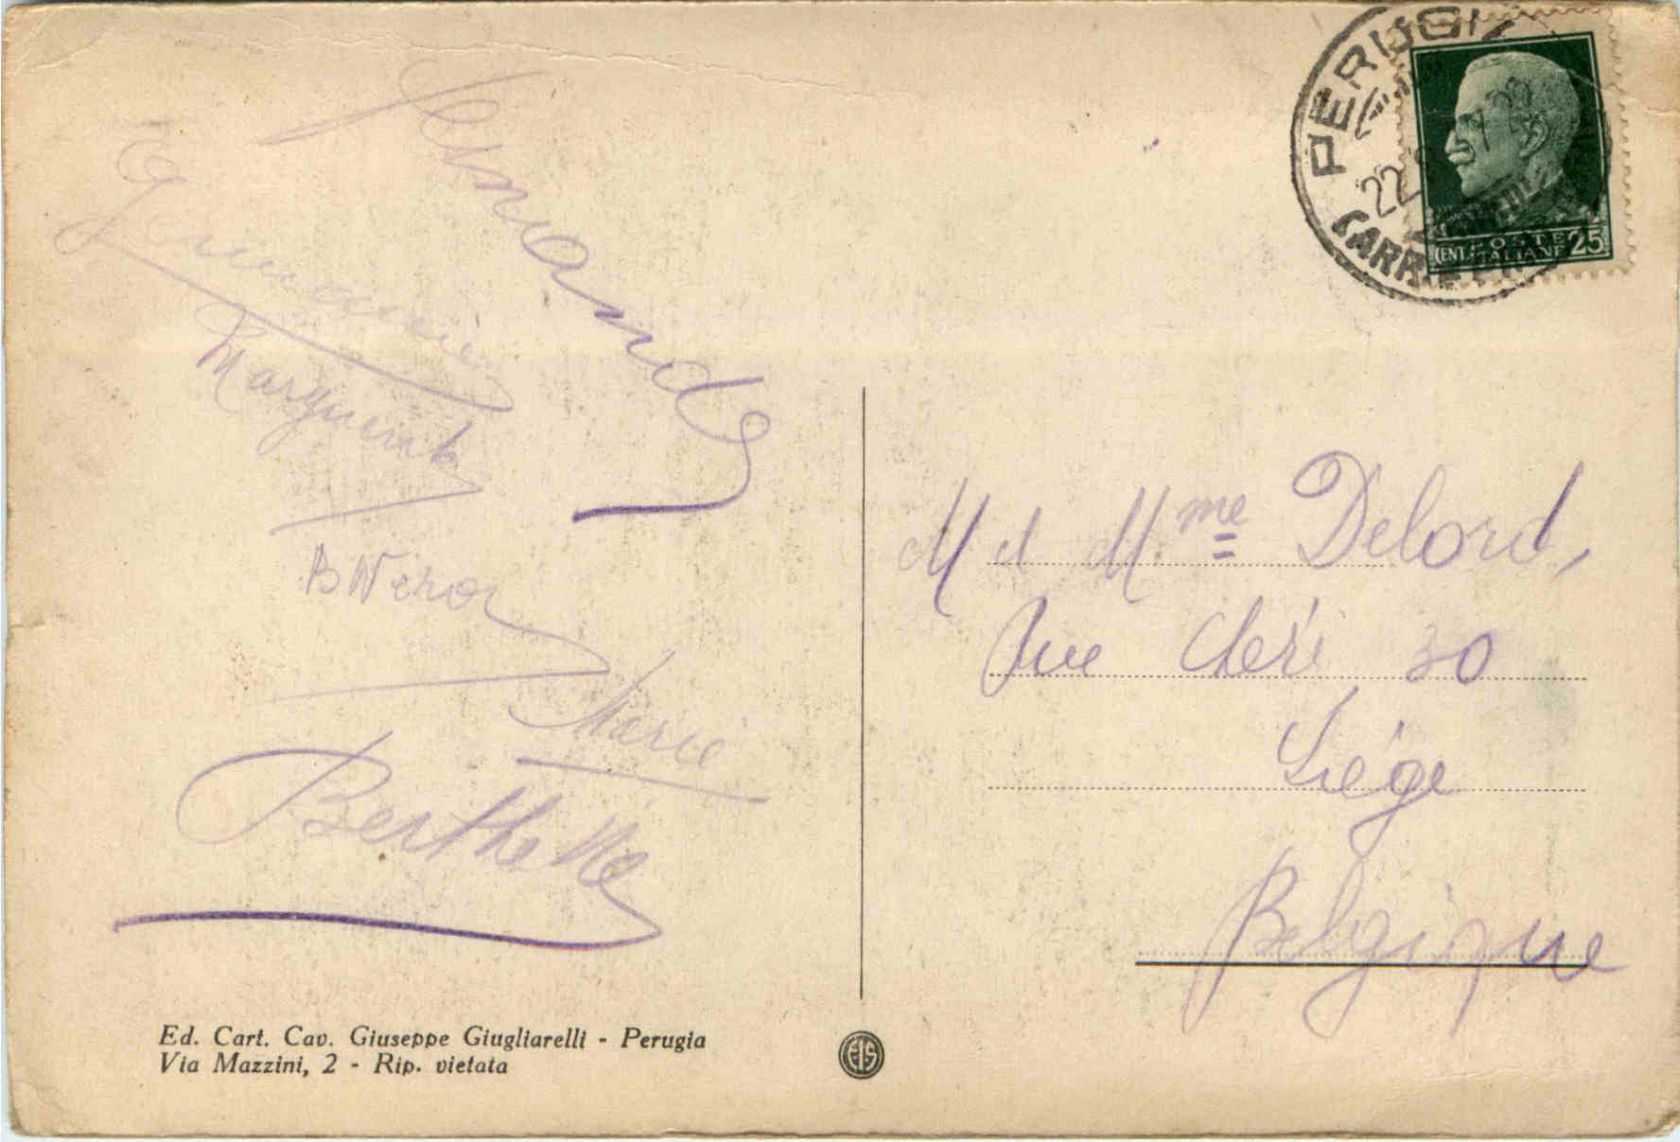 PERUGIA
22
CENT. POSTE ITALIANE 25
Fernande
Germaine
Marguerite
Marie
Berthe
M et Mme Delord,
Rue Chéri 30
Liége
Belgique
Ed. Cart. Cav. Giuseppe Giugliarelli - Perugia
Via Mazzini, 2 - Rip. vietata